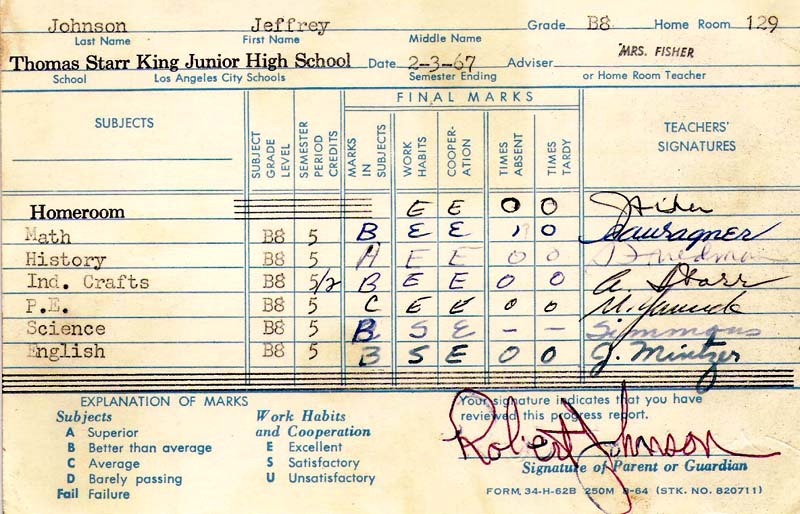 Johnson Jeffrey Grade B8 Home Room 129
Last Name First Name Middle Name
MRS. FISHER
Thomas Starr King Junior High School Date 2-3-67 Adviser
School Los Angeles City Schools Semester Ending or Home Room Teacher
FINAL MARKS
SUBJECTS SUBJECT GRADE LEVEL SEMESTER PERIOD CREDITS MARKS IN SUBJECTS WORK HABITS COOPER-ATION TIMES ABSENT TIMES TARDY TEACHERS' SIGNATURES
Homeroom E E 0 0
Math B8 5 B E E 1 0
History B8 5 A E E 0 0
Ind. Crafts B8 5/2 B E E 0 0 A. Starr
P.E. B8 5 C E E 0 0
Science B8 5 B S E – – Simmons
English B8 5 B S E 0 0 J. Mintzer
EXPLANATION OF MARKS
Subjects
A Superior
B Better than average
C Average
D Barely passing
Fail Failure
Work Habits
and Cooperation
E Excellent
S Satisfactory
U Unsatisfactory
Your signature indicates that you have
reviewed this progress report.
Robert Johnson
Signature of Parent or Guardian
FORM 34-H-62B 250M 8-64 (STK. NO. 820711)